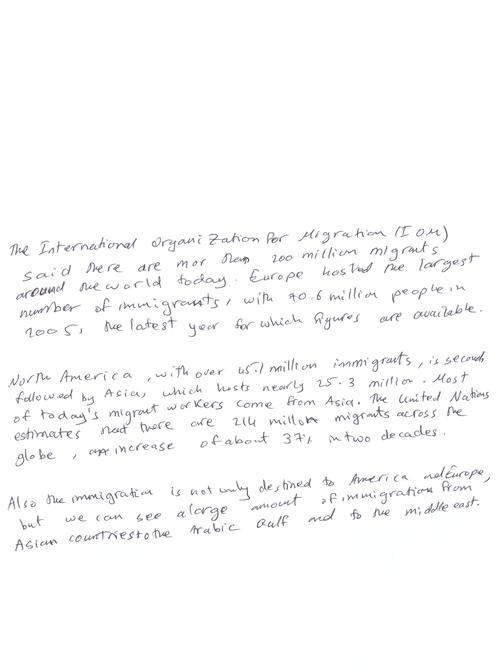 The International Organization for Migration (IOM)
said there are mor than 200 million migrants
around the world today. Europe hosted the largest
number of immigrants, with 70.6 million people in
2005, the latest year for which figures are available.
North America, with over 45.1 million immigrants, is second,
followed by Asia, which hosts nearly 25.3 million. Most
of today's migrant workers come from Asia. The United Nations
estimates that there are 214 million migrants across the
globe, an increase of about 37% in two decades.
Also the immigration is not only destined to America and Europe,
but we can see a large amount of immigration from
Asian countries to the Arabic Gulf and to the middle east.